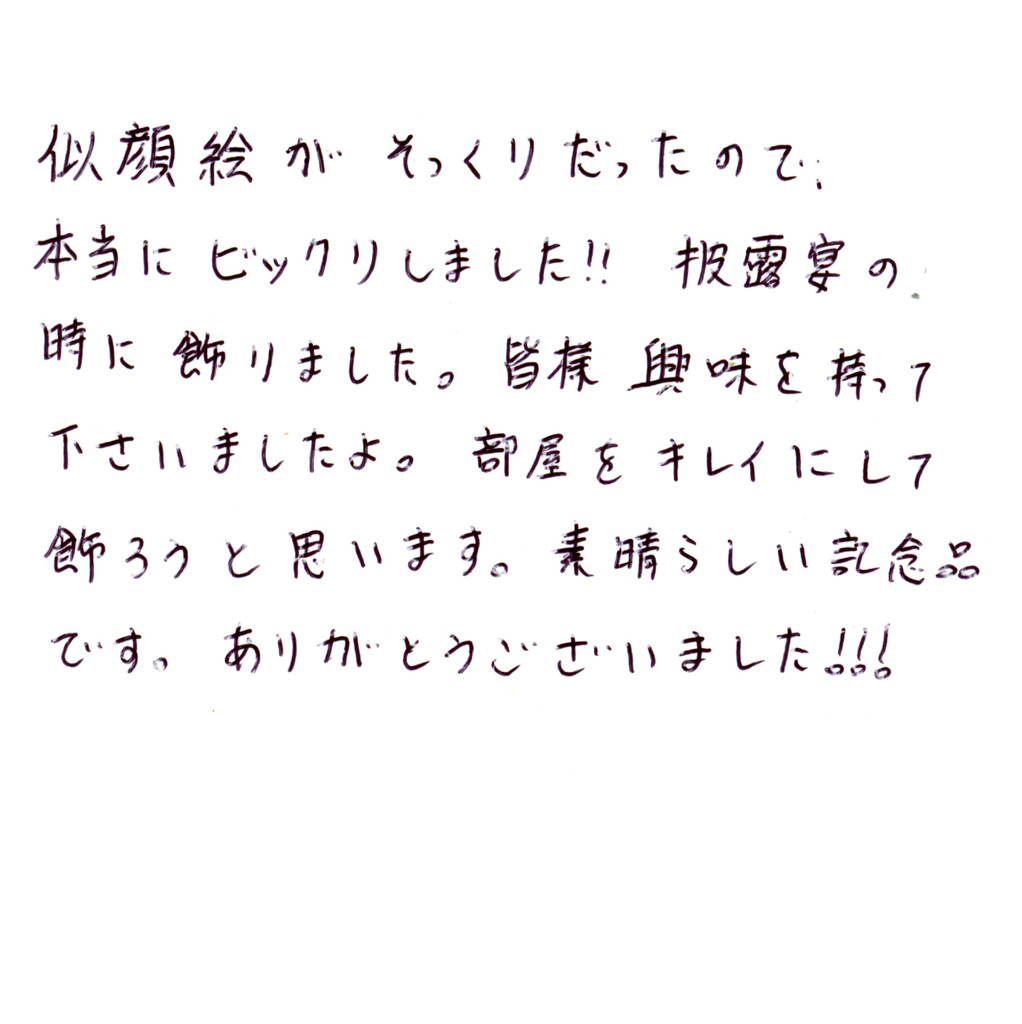 似顔絵がそっくりだったので、
本当にビックリしました!! 披露宴の
時に飾りました。皆様興味を持って
下さいましたよ。部屋をキレイにして
飾ろうと思います。素晴らしい記念品
です。ありがとうございました!!!